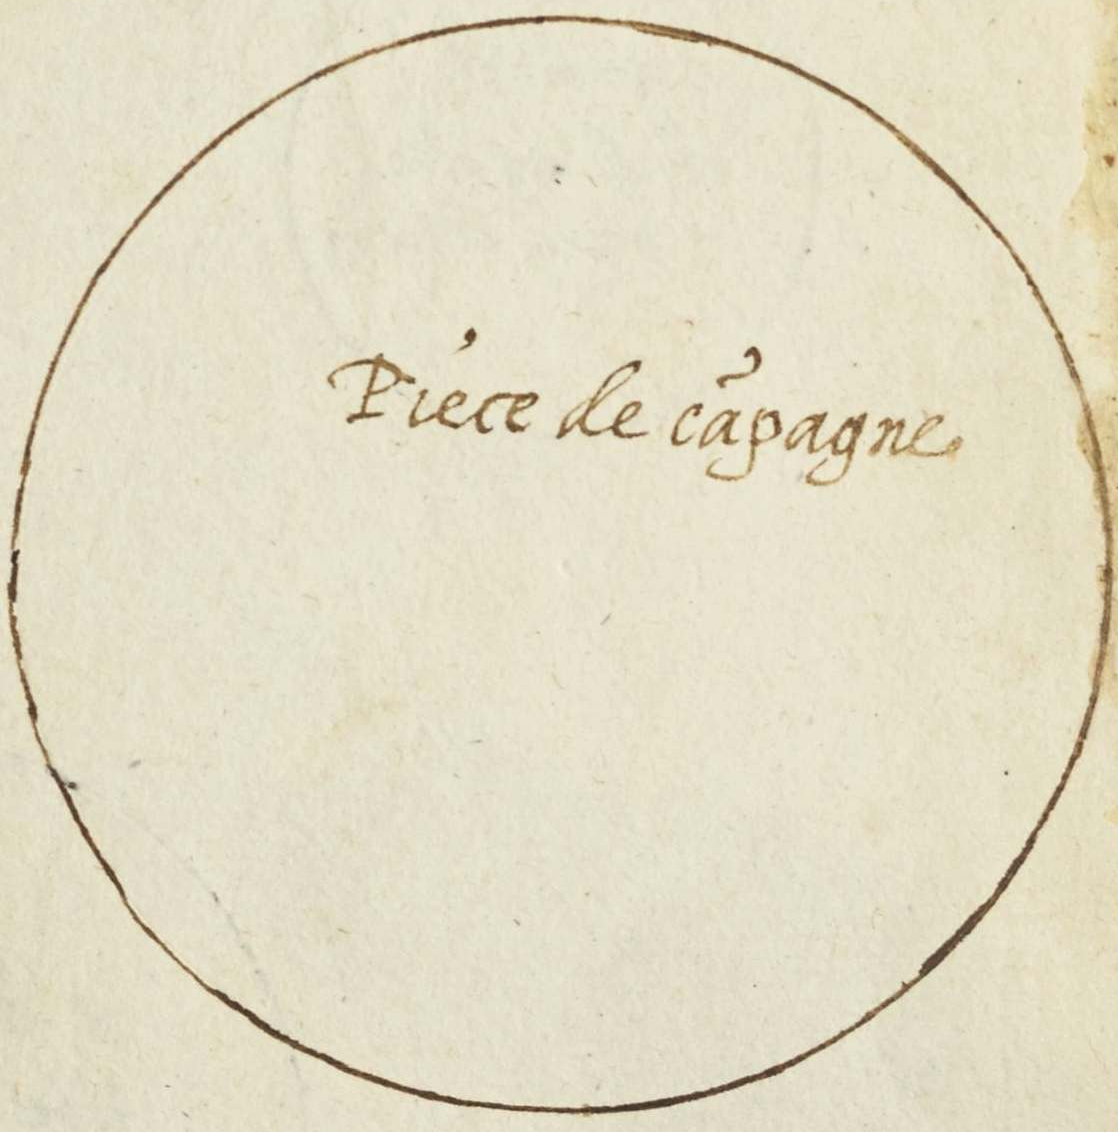 Piece de cãpagne